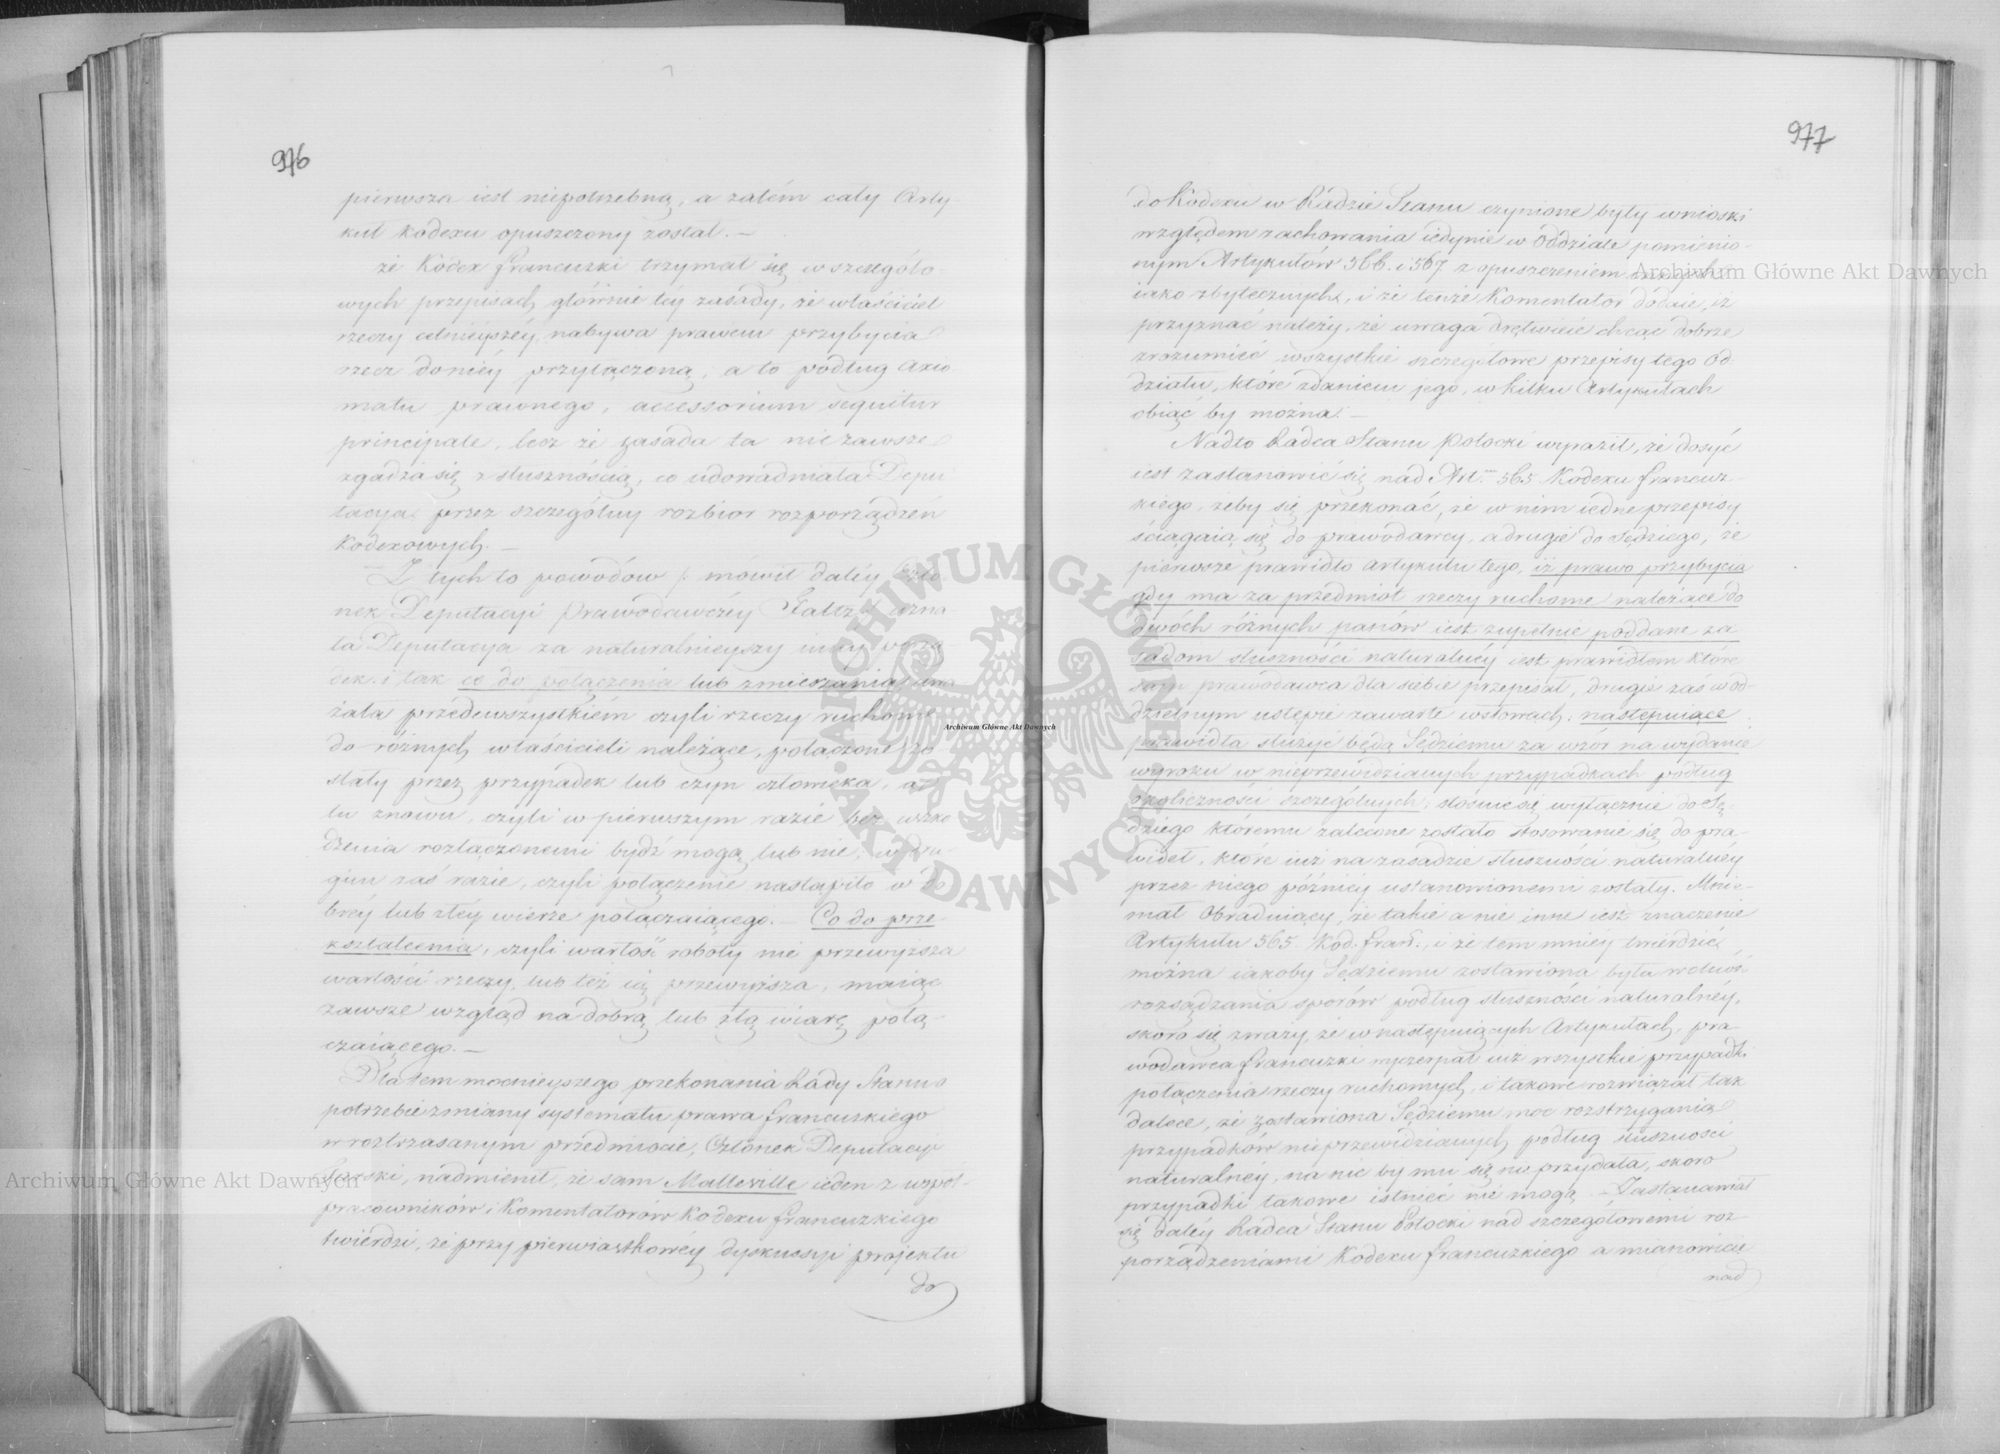 976
pierwsza iest niepotrzebną, a zatém cały Arty
kuł kodexu opuszczony został. —
że Kodex francuzki trzymał się w szczegóło
wych przepisach głównie téy zasady, że właściciel
rzeczy celnieyszéy, nabywa prawem przybycia
rzecz do niéy przyłączoną, a to podług axio
matu prawnego, accessorium sequitur
principale, lecz że zasada ta nie zawsze
zgadza się z słusznością, co udowadniała Depu
tacya przez szczególny rozbior rozporządzeń
Kodexowych. —
Z tych to powodów /: mówił daléy Czło
nek Deputacyi Prawodawczéy Faltz :/ uzna
ła Deputacya za naturalnieyszy inny porzą
dek i tak co do połączenia lub zmieszania, uwa
żała przedewszystkiém czyli rzeczy ruchome
do różnych właścicieli należące, połączone zo
stały przez przypadek lub czyn człowieka, a
tu znowu, czyli w pierwszym razie bez uszko
dzenia rozłączonemi bydź mogą lub nie; w dru
gim zaś razie, czyli połączenie nastąpiło w do
bréy lub złéy wierze połączaiącego. — Co do prze
kształcenia, czyli wartość roboty nie przewyższa
wartości rzeczy, lub też ią przewyższa, maiąc
zawsze wzgląd na dobrą lub złą wiarę połą-
czaiącego. —
Dla tem mocnieyszego przekonania Rady Stanu o
potrzebie zmiany systematu prawa francuzkiego
w roztrząsanym przedmiocie, Członek Deputacyi
nadmienił, że sam Malleville ieden z współ-
pracowników i Komentatorów Kodexu francuzkiego
twierdzi, że przy pierwiastkowéy dyskussyi projektu
do
977
do Kodexu w Radzie Stanu czynione były wnioski
względem zachowania iedynie w Oddziale pomienio-
nym Artykułów 566. i 567 z opuszczeniem innych
iako zbytecznych, i że tenże Komentator dodaie, iż
przyznać należy, że uwaga drętwieie chcąc dobrze
zrozumieć wszystkie szczegółowe przepisy tego Od
działu, które zdaniem jego, w kilku Artykułach
obiąć by można. —
Nadto Radca Stanu Potocki wyraził, że dosyć
iest zastanowić się nad Art. 565 Kodexu francuz-
kiego, żeby się przekonać, że w nim iedne przepisy
ściągaią się do prawodawcy, a drugie do Sędziego, że
pierwsze prawidło artykułu tego, iż prawo przybycia
gdy ma za przedmiot rzeczy ruchome należące do
dwóch różnych panów iest zupełnie poddane za
sadom słuszności naturalnéy iest prawidłem które
sam prawodawca dla siebie przepisał, drugie zaś w od-
dzielnym ustępie zawarte w słowach, następuiące
prawidła służyć będą Sędziemu za wzór na wydanie
wyroku w nieprzewidzianych przypadkach podług
okoliczności szczególnych, stósuie się wyłącznie do Sę-
dziego któremu zalecone zostało stosowanie się do pra-
wideł, które iuż na zasadzie słuszności naturalnéy
przez niego późniéy ustanowionemi zostały. Mnie-
mał Obraduiący, że takie a nie inne iest znaczenie
Artykułu 565. Kod. fran., i że tem mniéy twierdzić
można iakoby Sędziemu zostawiona była wolność
rozsądzania sporów podług słuszności naturalnéy,
skoro się zważy, że w następuiących Artykułach, pra-
wodawca francuzki wyczerpał iuż wszystkie przypadki
połączenia rzeczy ruchomych, i takowe rozwiązał tak
dalece, że zostawiona Sędziemu moc rozstrzygania
przypadków nieprzewidzianych podług słuszności
naturalnéy, na nic by mu się nie przydała, skoro
przypadki takowe istnieć nie mogą. — Zastanawiał
się daléy Radca Stanu Potocki nad szczegółowemi roz-
porządzeniami Kodexu francuzkiego a mianowicie
nad
Archiwum Główne Akt Dawnych
Archiwum Główne Akt Dawnych
Archiwum Główne Akt Dawnych
ARCHIWUM GŁÓWNE AKT DAWNYCH